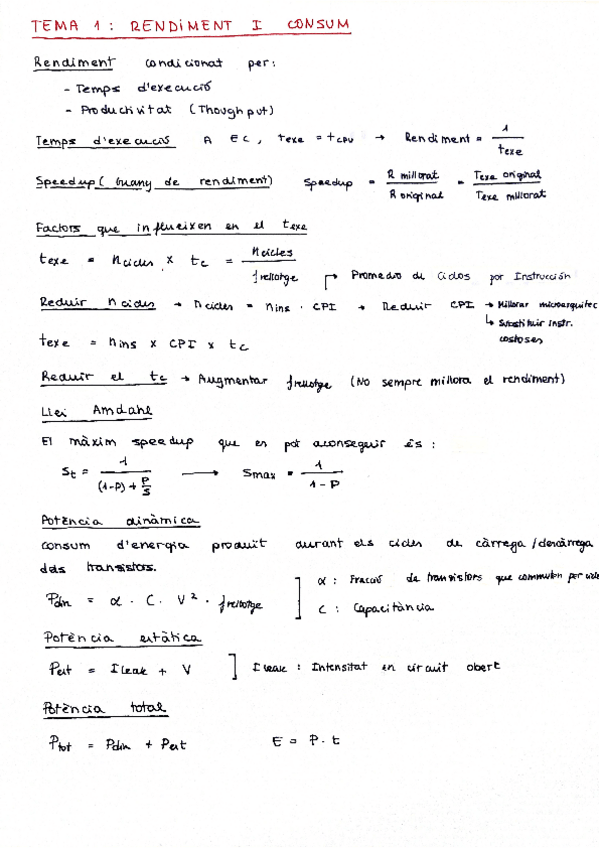 TEMA 1: RENDIMENT I CONSUM
Rendiment condicionat per:
- Temps d'execució
- Productivitat (Thoughput)
Temps d'execució A EC, t_exe = t_CPU → Rendiment = 1 / t_exe
Speedup (Guany de rendiment) Speedup = R millorat / R original = T_exe original / T_exe millorat
Factors que influeixen en el t_exe
t_exe = n_cicles × t_c = n_cicles / f_rellotge
Promedio de Ciclos por Instrucción
Reduir n_cicles → n_cicles = n_ins · CPI → Reduir CPI → Millorar microarquitec
↳ Substituir instr. costoses
t_exe = n_ins × CPI × t_c
Reduir el t_c → Augmentar f_rellotge (No sempre millora el rendiment)
Llei Amdahl
El màxim speedup que es pot aconseguir és:
S_t = 1 / ((1-P) + P/S) → S_max = 1 / (1-P)
Potència dinàmica
Consum d'energia produit durant els cicles de càrrega/descàrrega
dels transistors.
α: Fracció de transistors que commuten per cicle
P_din = α · C · V² · f_rellotge
C: Capacitància
Potència estàtica
P_est = I_leak + V ] I_leak: Intensitat en circuit obert
Potència total
P_tot = P_din + P_est E = P · t